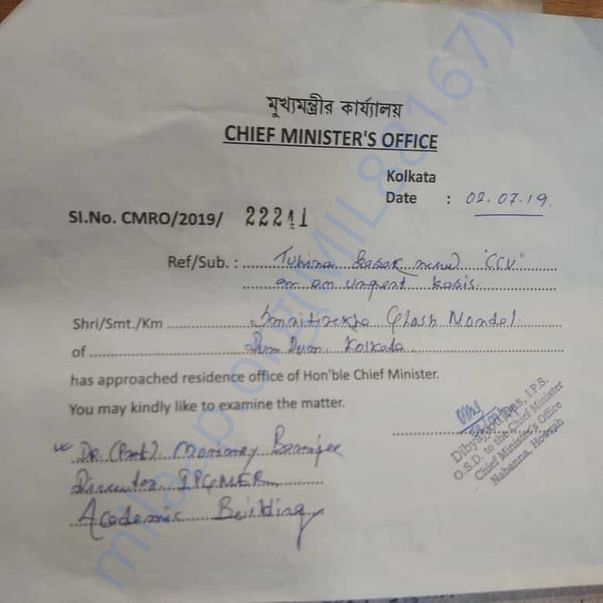 মুখ্যমন্ত্রীর কার্য্যালয়
CHIEF MINISTER'S OFFICE
Kolkata
Date : 02.07.19.
Sl.No. CMRO/2019/ 22241
Ref/Sub. : Tuhina Basak need "CCU"
on an urgent basis.
Shri/Smt./Km Smritirekha Ghosh Mondal
of Dum Dum, Kolkata
has approached residence office of Hon'ble Chief Minister.
You may kindly like to examine the matter.
Das, I.P.S.
O.S.D. to the Chief Minister
Chief Minister's Office
Nabanna, Howrah
Dr. (Prof) Banerjee
Director IPGMER
Academic Building
milaap.org(MIL88167)